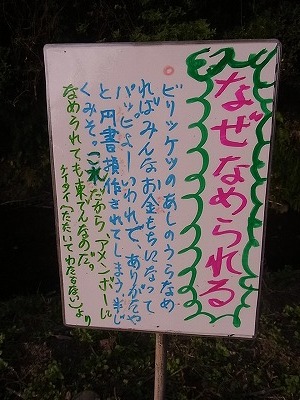 なぜなめられる
ビリッケツのあしのうらなめ
ればみんなお金もちになって
パッピョーいわれで、ありがたや
と円書損作されてしまう半じ
くみそ。これだから、アメンボーに
なめられても東でんなのだ。
ケイタイ(だたいてわたらない)より